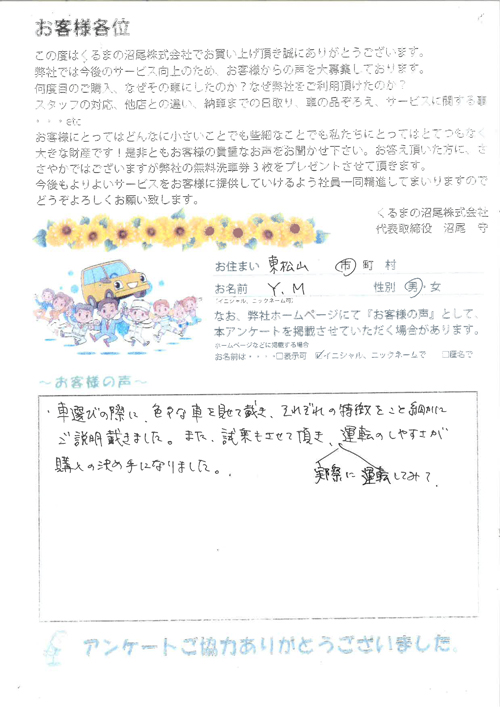 お客様各位
この度はくるまの沼尾株式会社でお買い上げ頂き誠にありがとうございます。
弊社では今後のサービス向上のため、お客様からの声を大募集しております。
何度目のご購入、なぜその車にしたのか？なぜ弊社をご利用頂けたのか？
スタッフの対応、他店との違い、納車までの日取り、車の品ぞろえ、サービスに関する事
・・・etc
お客様にとってはどんなに小さいことでも些細なことでも私たちにとってはとてつもなく
大きな財産です！是非ともお客様の貴重なお声をお聞かせ下さい。お答え頂いた方に、さ
さやかではございますが弊社の無料洗車券３枚をプレゼントさせて頂きます。
今後もよりよいサービスをお客様に提供していけるよう社員一同精進してまいりますので
どうぞよろしくお願い致します。
くるまの沼尾株式会社
代表取締役 沼尾 守
お住まい 東松山 市 町 村
お名前 Y.M 性別 男・女
「イニシャル、ニックネーム可」
なお、弊社ホームページにて『お客様の声』として、
本アンケートを掲載させていただく場合があります。
ホームページなどに掲載する場合
お名前は・・・・□表示可 ☑イニシャル、ニックネームで □匿名で
～お客様の声～
・車選びの際に、色々な車を見せて戴き、それぞれの特徴をこと細かに
ご説明戴きました。また、試乗もさせて頂き、運転のしやすさが
購入の決め手になりました。
実際に運転してみて
アンケートご協力ありがとうございました。